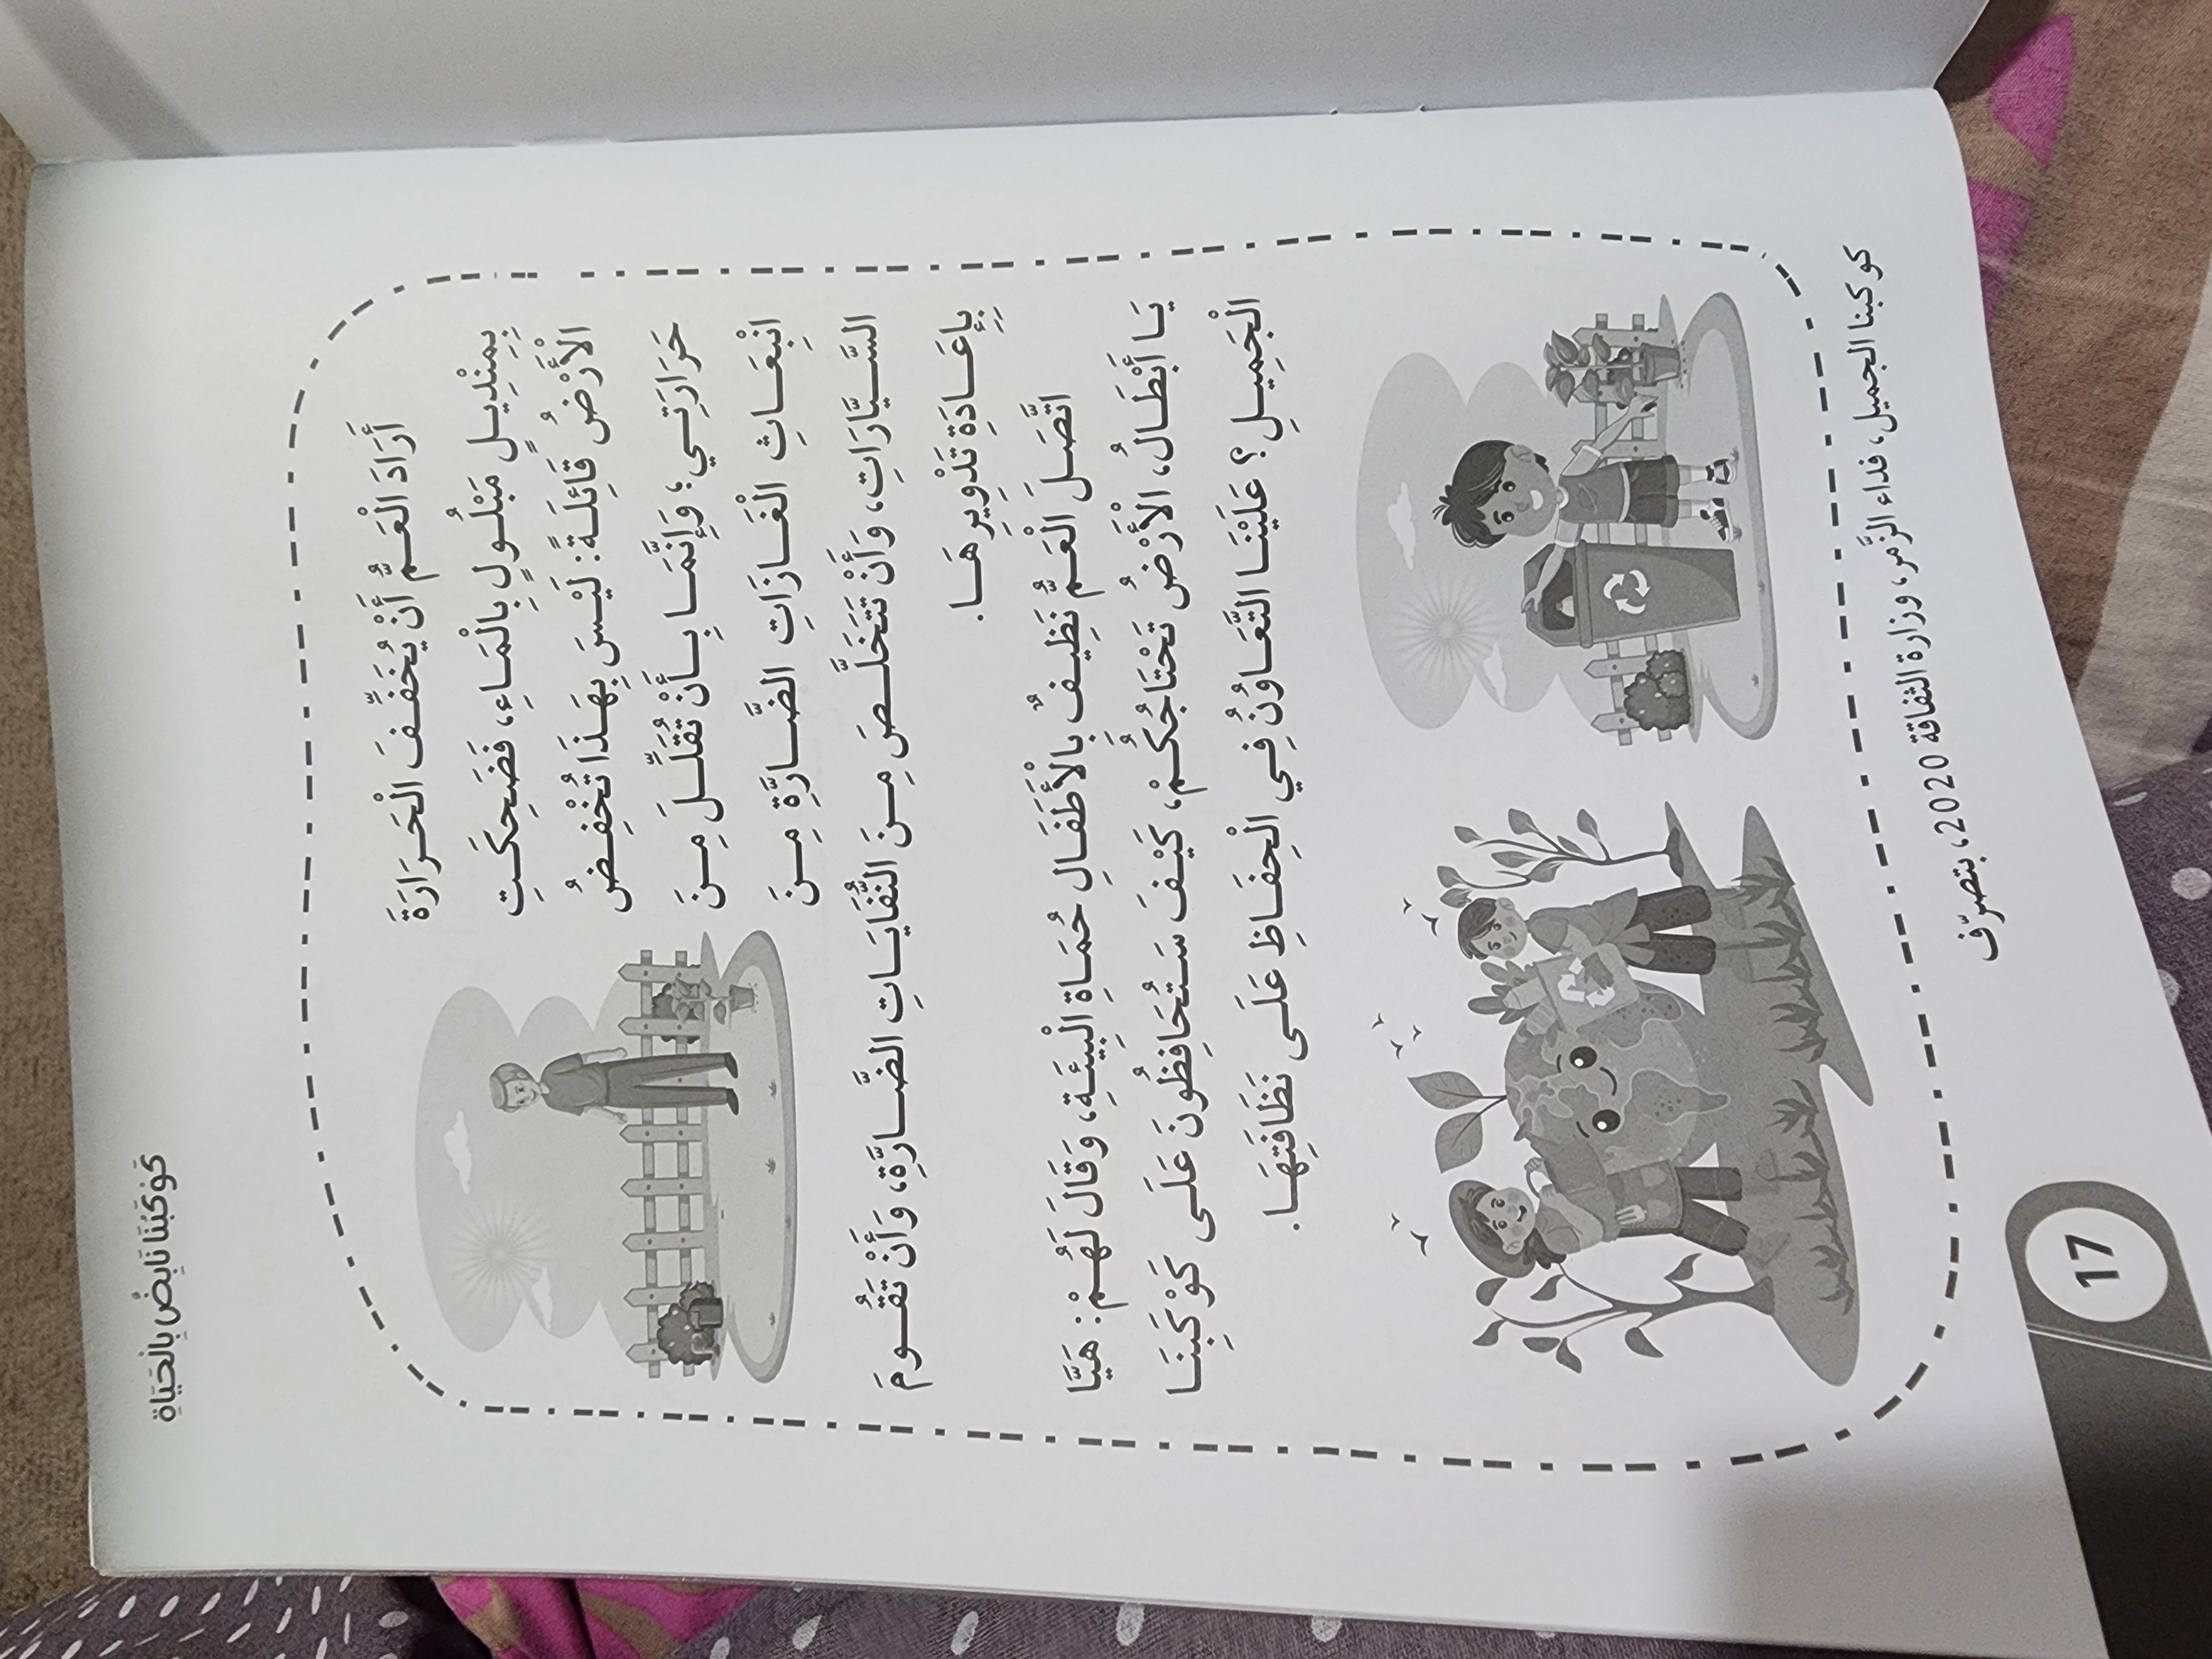 كَوْكَبُنَا نَابِضٌ بِالْحَيَاةِ
أَرَادَ الْعَمُّ أَنْ يُخَفِّفَ الْحَرَارَةَ
بِمِنْدِيلٍ مَبْلُولٍ بِالْمَاءِ، فَضَحِكَتِ
الْأَرْضُ قَائِلَةً: لَيْسَ بِهَذَا تُخْفِضُ
حَرَارَتِي؛ وَإِنَّمَا بِأَنْ تُقَلِّلَ مِنَ
انْبِعَاثِ الْغَازَاتِ الضَّارَّةِ مِنَ
السَّيَّارَاتِ، وَأَنْ تَتَخَلَّصَ مِنَ النُّفَايَاتِ الضَّارَّةِ، وَأَنْ تَقُومَ
بِإِعَادَةِ تَدْوِيرِهَا.
اتَّصَلَ الْعَمُّ نَظِيفٌ بِالْأَطْفَالِ حُمَاةِ الْبِيئَةِ، وَقَالَ لَهُمْ: هَيَّا
يَا أَبْطَالُ، الْأَرْضُ تَحْتَاجُكُمْ، كَيْفَ سَتُحَافِظُونَ عَلَى كَوْكَبِنَا
الْجَمِيلِ؟ عَلَيْنَا التَّعَاوُنُ فِي الْحِفَاظِ عَلَى نَظَافَتِهَا.
كوكبنا الجميل، فداء الزَّمر، وزارة الثقافة 2020، بتصرّف
17